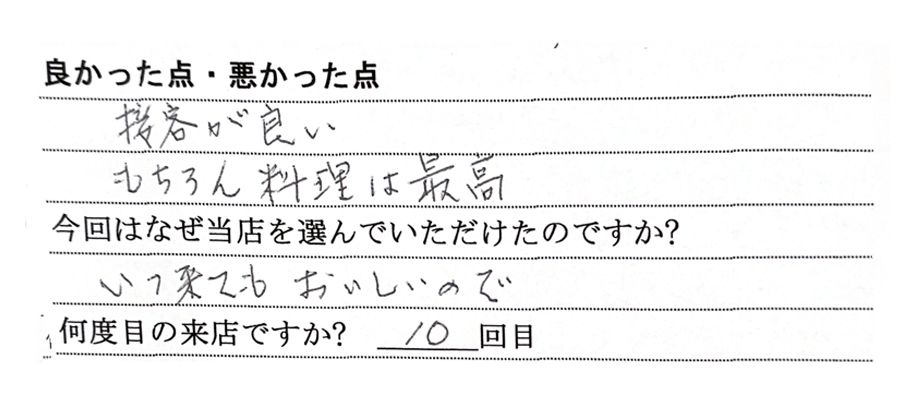 良かった点・悪かった点
接客が良い
もちろん 料理は最高
今回はなぜ当店を選んでいただけたのですか?
いつ来ても おいしいので
何度目の来店ですか? 10 回目